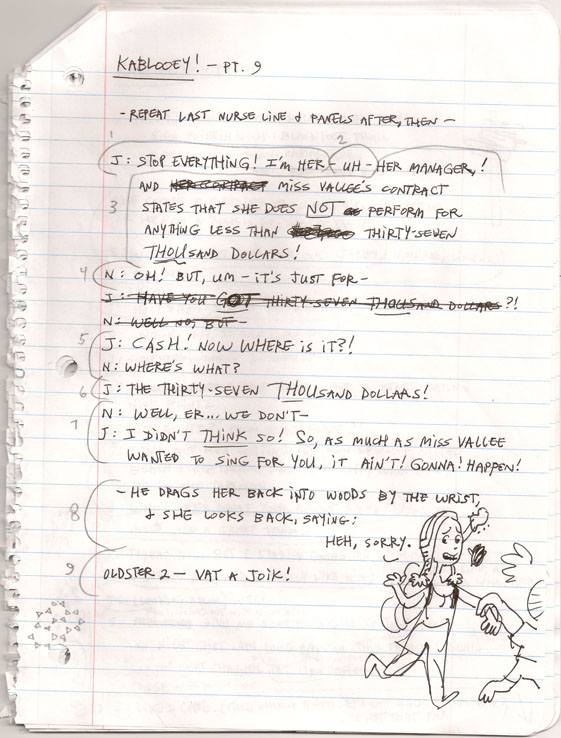 KABLOOEY! - PT. 9
- REPEAT LAST NURSE LINE & PANELS AFTER, THEN -
1
2
J: STOP EVERYTHING! I'M HER - UH - HER MANAGER,!
AND HER CONTRACT MISS VALLEE'S CONTRACT
3 STATES THAT SHE DOES NOT PERFORM FOR
ANYTHING LESS THAN THIRTY-SEVEN
THOUSAND DOLLARS!
4 N: OH! BUT, UM - IT'S JUST FOR -
J: HAVE YOU GOT THIRTY-SEVEN THOUSAND DOLLARS?!
N: WELL NO, BUT -
5 J: CASH! NOW WHERE IS IT?!
N: WHERE'S WHAT?
6 J: THE THIRTY-SEVEN THOUSAND DOLLARS!
N: WELL, ER... WE DON'T-
7 J: I DIDN'T THINK SO! SO, AS MUCH AS MISS VALLEE
WANTED TO SING FOR YOU, IT AIN'T! GONNA! HAPPEN!
- HE DRAGS HER BACK INTO WOODS BY THE WRIST,
8 & SHE LOOKS BACK, SAYING:
HEH, SORRY.
9 OLDSTER 2 - VAT A JOIK!